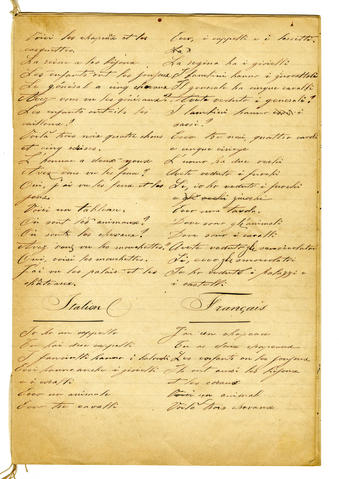 Voici les chapeaux et les
casquettes.
La reine a les bijoux
Les enfants ont les joujoux
Le général a cinq chevaux
Avez vous vu les généraux?
Les enfants ont ils les
cailloux?
Voilà trois noix quatre choux
et cinq
L'homme a deux yeux
Avez vous vu les jeux?
Oui, j'ai vu les jeux et les
Voici un tableau.
Où sont les animaux?
Où sont les chevaux?
Avez vous vu les mouchettes
Oui, voici les mouchettes.
J'ai vu les palais et les
châteaux.
Ecco, i cappelli e i berretti
La regina ha i gioielli
I bambini hanno i giocattoli
Il generale ha cinque cavalli
Avete veduto i generali?
I bambini hanno i
sassi?
Ecco tre noci, quattro cavoli
e cinque
L'uomo ha due occhi
Avete veduto i
Si, io ho veduto i
Ecco una tavola.
Dove sono gli animali
Dove sono i cavalli
Avete veduto
Si, ecco
Io ho veduto i palazzi e
i castelli
Italien
Io ho un cappello
Tu hai due cappelli
I fanciulli hanno i balocchi
Essi hanno anche i gioielli
e i coralli
Ecco un animale
Ecco tre cavalli
Français
J'ai un chapeau
Tu as deux chapeaux
Les enfants ont les joujoux
Ils ont aussi les bijoux
et les coraux
Voici un animal
Voilà trois chevaux